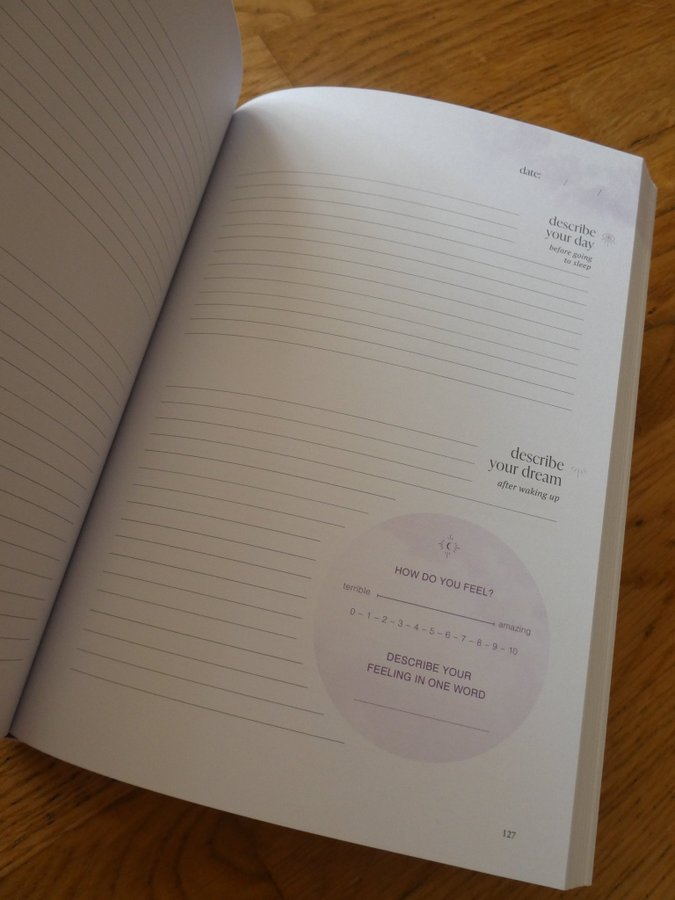 date: / /
describe
your day
before going
to sleep
describe
your dream
after waking up
HOW DO YOU FEEL?
terrible amazing
0 – 1 – 2 – 3 – 4 – 5 – 6 – 7 – 8 – 9 – 10
DESCRIBE YOUR
FEELING IN ONE WORD
127